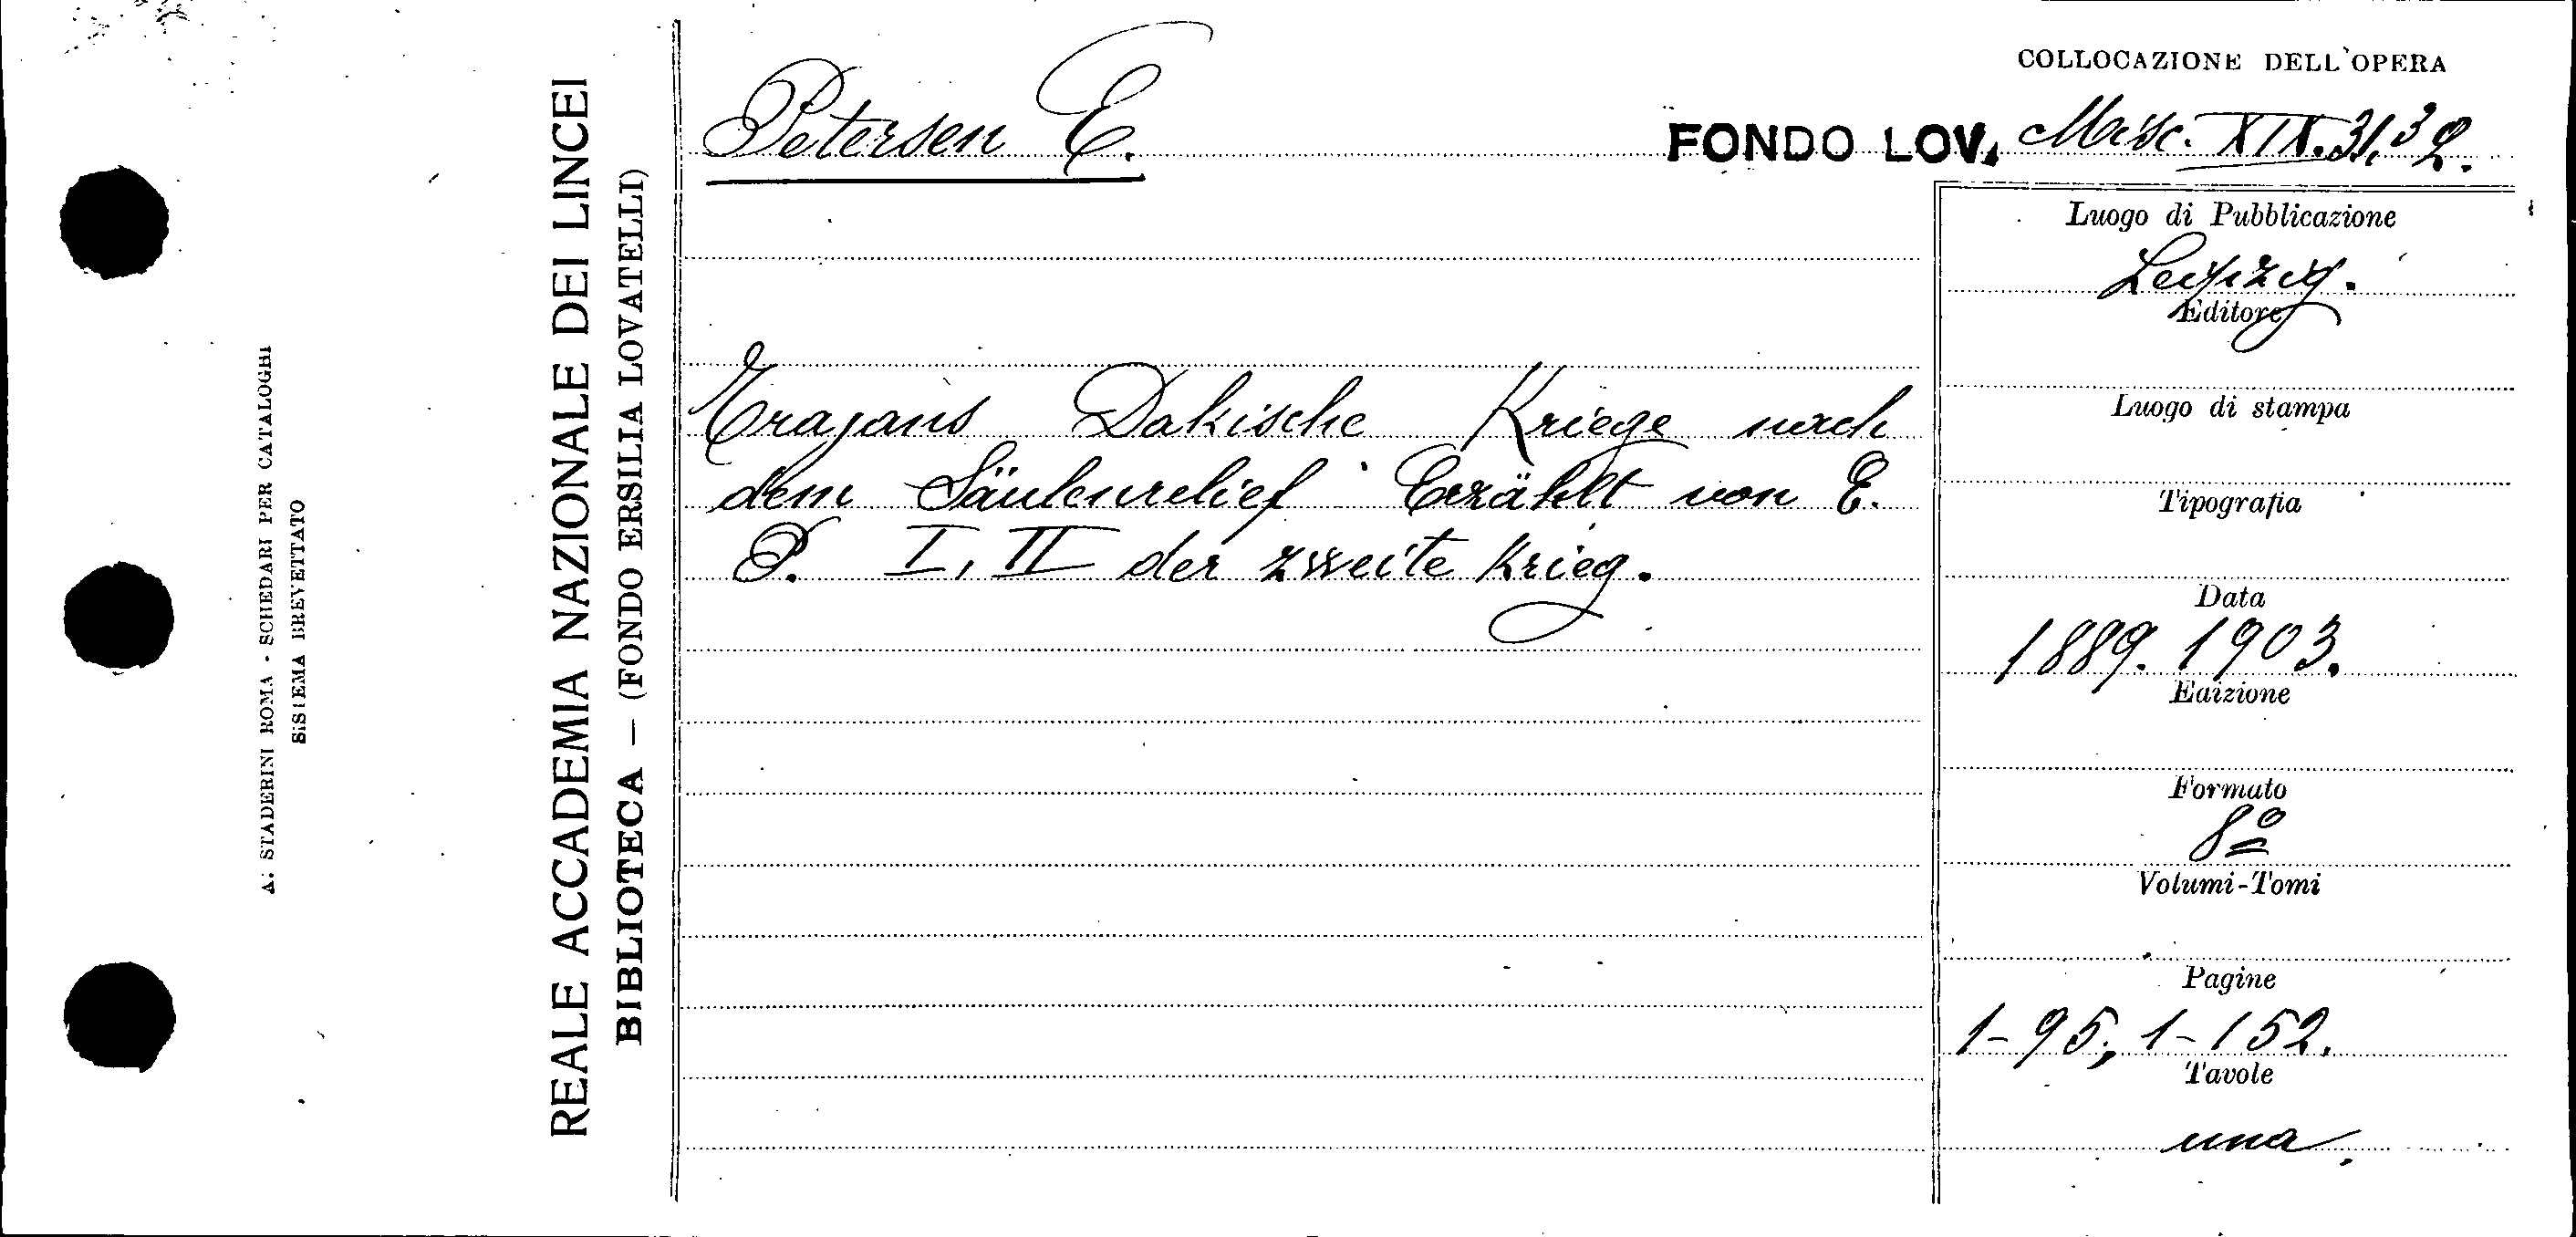 COLLOCAZIONE DELL'OPERA
Petersen E.
FONDO LOV. Misc. XIX.31.32.
Trajans Dakische Kriege nach
dem Säulenrelief Erzählt von E.
P. I, II der zweite Krieg.
Luogo di Pubblicazione
Leipzig.
Editore
Luogo di stampa
Tipografia
Data
1889. 1903.
Edizione
Formato
8º
Volumi-Tomi
Pagine
1-95; 1-152.
Tavole
una.
REALE ACCADEMIA NAZIONALE DEI LINCEI
BIBLIOTECA — (FONDO ERSILIA LOVATELLI)
A. STADERINI ROMA - SCHEDARI PER CATALOGHI
SISTEMA BREVETTATO